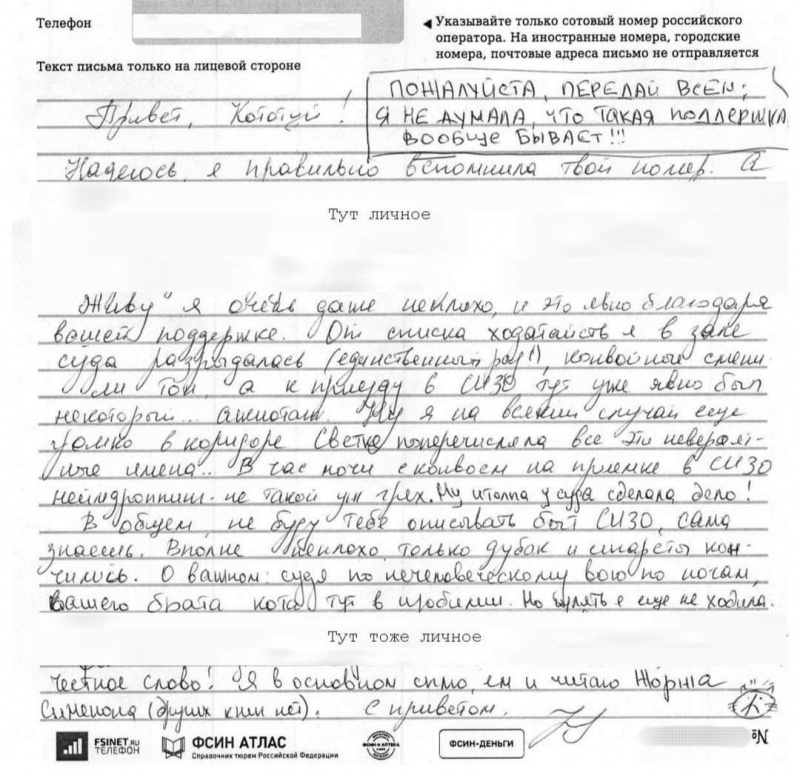 Телефон
◀ Указывайте только сотовый номер российского
оператора. На иностранные номера, городские
номера, почтовые адреса письмо не отправляется
Текст письма только на лицевой стороне
ПОЖАЛУЙСТА, ПЕРЕДАЙ ВСЕМ:
Я НЕ ДУМАЛА, ЧТО ТАКАЯ ПОДДЕРЖКА
ВООБЩЕ БЫВАЕТ!!!
Привет, !
Надеюсь, я правильно вспомнила твой номер. А
Тут личное
Живу я очень даже неплохо, и это явно благодаря
вашей поддержке. От списка ходатайств я в зале
суда разрыдалась (единственный раз!), конвойные смени-
ли тон, а к приезду в СИЗО тут уже явно был
некоторый... ажиотаж. Ну я на всякий случай еще
громко в коридоре Светке поперечисляла все эти невероят-
ные имена.. В час ночи с конвоем на приемке в СИЗО
неймдроппинг - не такой уж грех. Ну и толпа у суда сделала дело!
В общем, не буду тебе описывать быт СИЗО, сама
знаешь. Вполне неплохо, только дубак и сигареты кон-
чились. О важном: судя по нечеловеческому вою по ночам,
вашего брата кота тут в изобилии. Но гулять я еще не ходила.
Тут тоже личное
Честное слово! Я в основном сплю, ем и читаю Жоржа
Сименона (других книг нет). С приветом,
FSINET.RU
ТЕЛЕФОН
ФСИН АТЛАС
Справочник тюрем Российской Федерации
ФСИН-АПТЕКА
ФСИН-ДЕНЬГИ
№